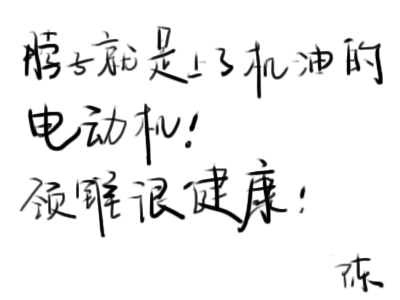 脖子就是上了机油的
电动机!
颈椎很健康!
陈